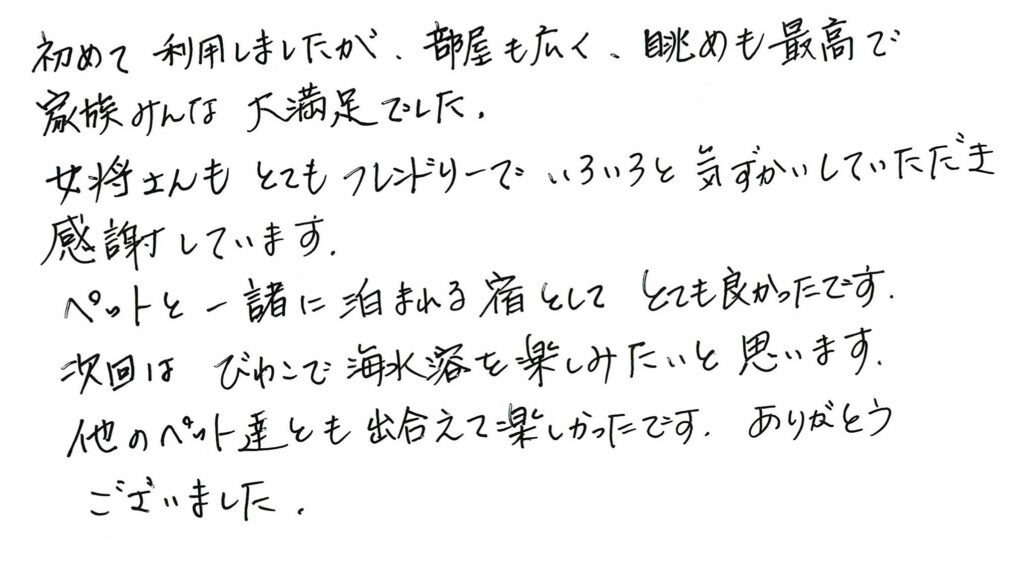 初めて利用しましたが、部屋も広く、眺めも最高で
家族みんな大満足でした。
女将さんもとてもフレンドリーでいろいろと気ずかいしていただき
感謝しています。
ペットと一諸に泊まれる宿としてとても良かったです。
次回はびわこで海水溶を楽しみたいと思います。
他のペット達とも出合えて楽しかったです。ありがとう
ございました。